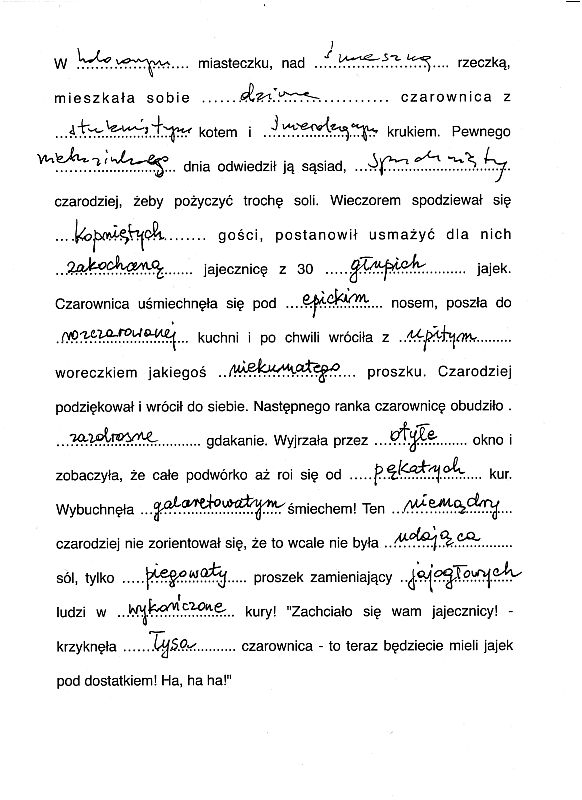 W kolorowym miasteczku, nad śmieszną rzeczką,
mieszkała sobie dziwna czarownica z
kotem i śmierdzącym krukiem. Pewnego
dnia odwiedził ją sąsiad,
czarodziej, żeby pożyczyć trochę soli. Wieczorem spodziewał się
kopniętych gości, postanowił usmażyć dla nich
zakochaną jajecznicę z 30 głupich jajek.
Czarownica uśmiechnęła się pod epickim nosem, poszła do
rozczarowanej kuchni i po chwili wróciła z upitym
woreczkiem jakiegoś niekumatego proszku. Czarodziej
podziękował i wrócił do siebie. Następnego ranka czarownicę obudziło .
zazdrosne gdakanie. Wyjrzała przez otyłe okno i
zobaczyła, że całe podwórko aż roi się od pękatych kur.
Wybuchnęła galaretowatym śmiechem! Ten niemądry
czarodziej nie zorientował się, że to wcale nie była udająca
sól, tylko piegowaty proszek zamieniający jajogłowych
ludzi w wykończone kury! "Zachciało się wam jajecznicy! -
krzyknęła łysa czarownica - to teraz będziecie mieli jajek
pod dostatkiem! Ha, ha ha!"